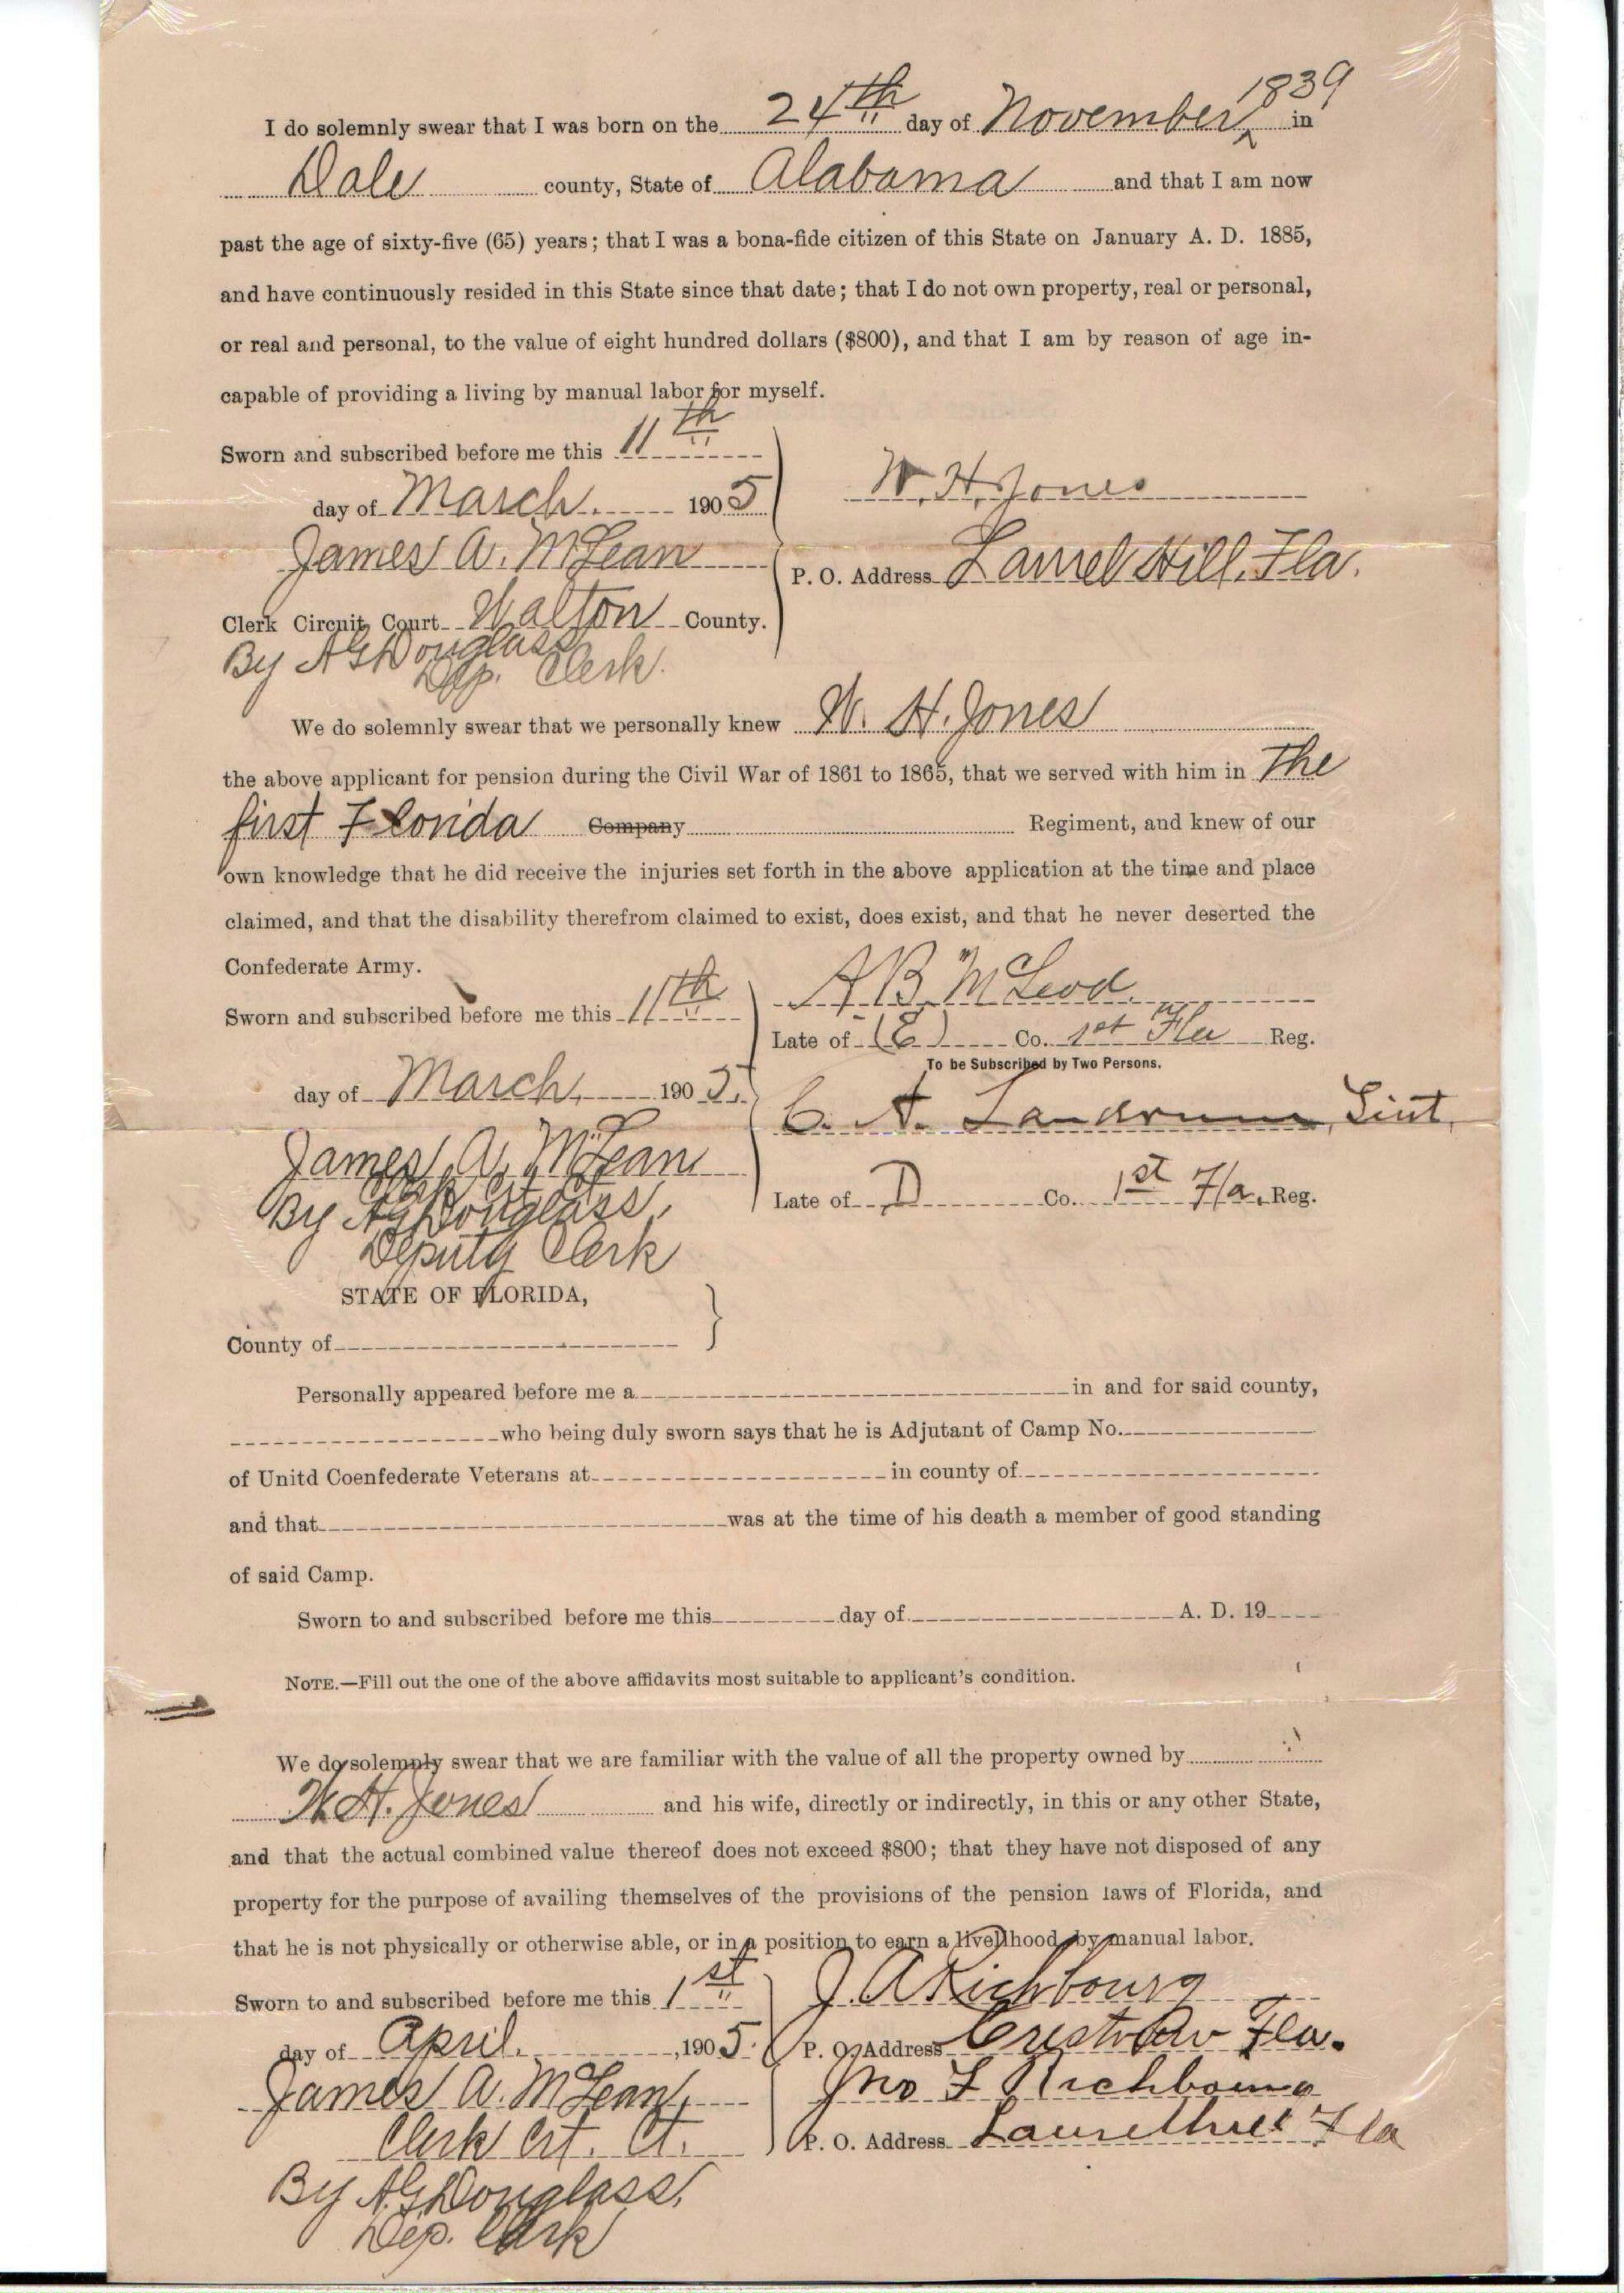 I do solemnly swear that I was born on the 24th day of November 1839 in
Dale county, State of Alabama and that I am now
past the age of sixty-five (65) years; that I was a bona-fide citizen of this State on January A. D. 1885,
and have continuously resided in this State since that date; that I do not own property, real or personal,
or real and personal, to the value of eight hundred dollars ($800), and that I am by reason of age in-
capable of providing a living by manual labor for myself.
Sworn and subscribed before me this 11th
day of March. 1905
W. H. Jones
James A. McLean
P. O. Address Laurel Hill, Fla.
Clerk Circuit Court Walton County.
By A G Douglass
Dep. Clerk.
We do solemnly swear that we personally knew W. H. Jones
the above applicant for pension during the Civil War of 1861 to 1865, that we served with him in The
first Florida Company Regiment, and knew of our
own knowledge that he did receive the injuries set forth in the above application at the time and place
claimed, and that the disability therefrom claimed to exist, does exist, and that he never deserted the
Confederate Army.
A B McLeod.
Sworn and subscribed before me this 11th
Late of (E) Co. 1st Fla Reg.
To be Subscribed by Two Persons.
day of March, 1905.
C. A. Landrum, Liut,
James A. McLean
Clerk Crt. Ct.
Late of D Co. 1st Fla. Reg.
By A G Douglass,
Deputy Clerk
STATE OF FLORIDA,
County of
Personally appeared before me a in and for said county,
who being duly sworn says that he is Adjutant of Camp No.
of Unitd Coenfederate Veterans at in county of
and that was at the time of his death a member of good standing
of said Camp.
Sworn to and subscribed before me this day of A. D. 19
NOTE.—Fill out the one of the above affidavits most suitable to applicant's condition.
We do solemnly swear that we are familiar with the value of all the property owned by
W. H. Jones and his wife, directly or indirectly, in this or any other State,
and that the actual combined value thereof does not exceed $800; that they have not disposed of any
property for the purpose of availing themselves of the provisions of the pension laws of Florida, and
that he is not physically or otherwise able, or in a position to earn a livelihood by manual labor.
J. A Richbourg
Sworn to and subscribed before me this 1st
day of April. ,1905.
P. O. Address Crestview Fla.
James A. McLean,
Jno F Richbourg
Clerk Crt. Ct.
P. O. Address Laurelhill Fla
By A G Douglass,
Dep. Clerk